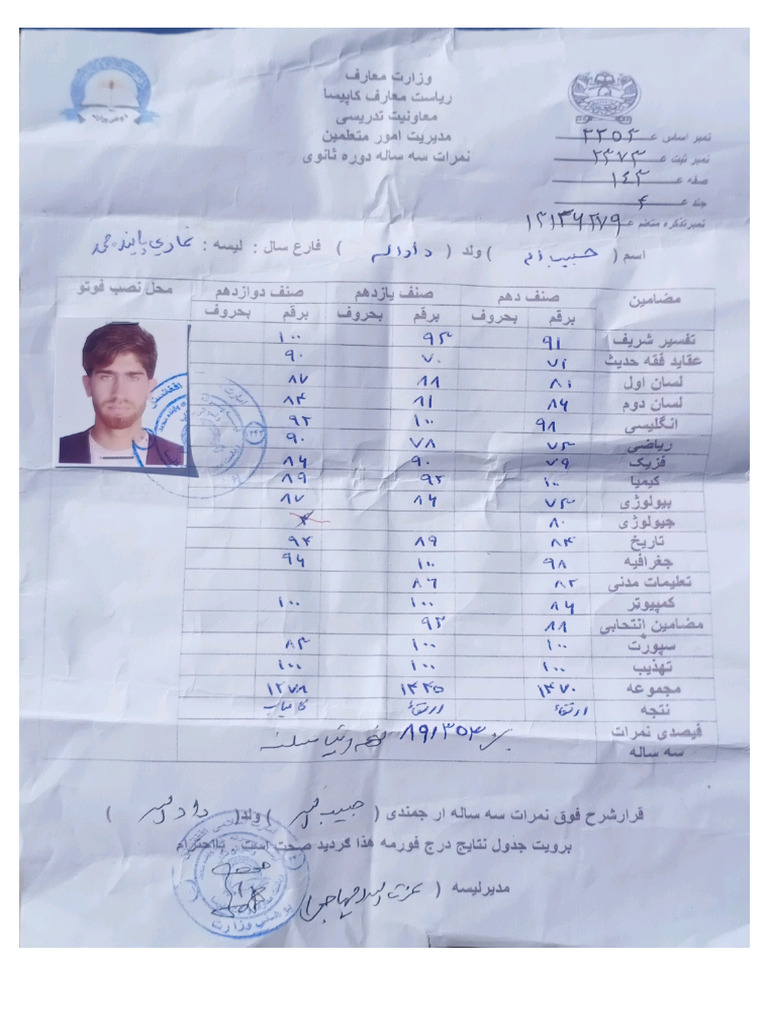 وزارت معارف
ریاست معارف کاپیسا
معاونیت تدریسی
مدیریت امور متعلمین
نمرات سه ساله دوره ثانوی
نمبر اساس
نمبر ثبت ۲۳۷۳
صفه ۱۴۳
جند ۴
نمبرتذکره متعلم
اسم ( حبیب الله ) ولد ( دادالله ) فارغ سال : لیسه : غازی پاینده محمد
مضامین صنف دهم صنف یازدهم صنف دوازدهم محل نصب فوتو
برقم بحروف برقم بحروف برقم بحروف
تفسیر شریف ۹۱ ۹۴ ۱۰۰
عقاید فقه حدیث ۷۱ ۷۰ ۹۰
لسان اول ۸۱ ۸۸ ۸۷
لسان دوم ۸۶ ۸۱ ۸۴
انگلیسی ۹۸ ۱۰۰ ۹۲
ریاضی ۷۳ ۷۸ ۹۰
فزیک ۷۹ ۹۰ ۸۶
کیمیا ۱۰۰ ۹۲ ۸۹
بیولوژی ۷۳ ۸۶ ۸۷
جیولوژی ۸۰
تاریخ ۸۴ ۸۹ ۹۴
جغرافیه ۹۸ ۱۰۰ ۹۶
تعلیمات مدنی ۸۲ ۸۶
کمپیوتر ۸۶ ۱۰۰ ۱۰۰
مضامین انتحابی ۸۸ ۹۳
سپورت ۱۰۰ ۱۰۰ ۸۳
تهذیب ۱۰۰ ۱۰۰ ۱۰۰
مجموعه ۱۴۷۰ ۱۴۳۵ ۱۲۷۸
نتجه ارتقاء ارتقاء کامیاب
فیصدی نمرات
سه ساله
قرارشرح فوق نمرات سه ساله ار جمندی ( حبیب الله ) ولد( دادالله )
برویت جدول نتایج درج فورمه هذا گردید صحت است . بااحترام
مدیرلیسه (